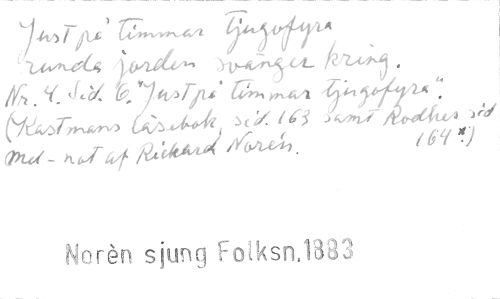 Just på timmar tjugofyra
runda jorden svänger kring.
Nr. 4. Sid. 6. "Just på timmar tjugofyra".
(Kastmans läsebok, sid. 163 samt Rodhes sid
164*.)
mel-not af Rickard Norén.
Norèn sjung Folksn,1883